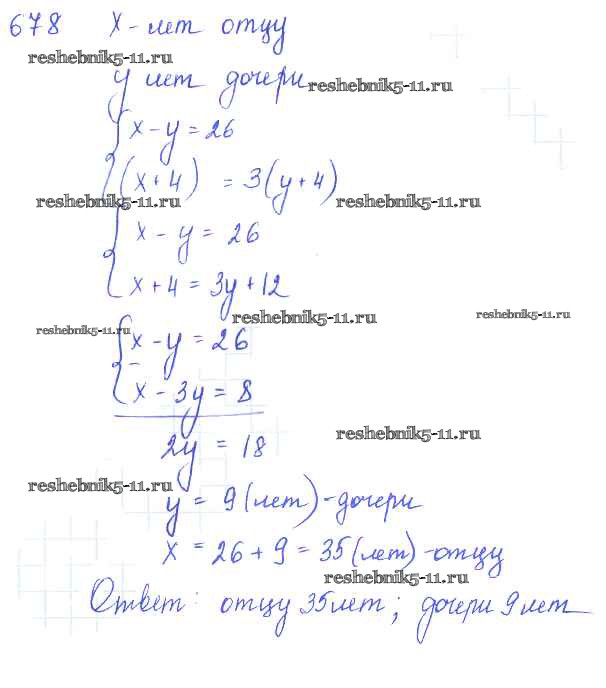 678 X - лет отцу
reshebnik5-11.ru
y лет дочери reshebnik5-11.ru
x - y = 26
(x + 4) = 3(y + 4)
reshebnik5-11.ru reshebnik5-11.ru
x - y = 26
x + 4 = 3y + 12
reshebnik5-11.ru reshebnik5-11.ru
reshebnik5-11.ru
x - y = 26
-
x - 3y = 8
2y = 18
reshebnik5-11.ru
reshebnik5-11.ru
y = 9 (лет) - дочери
x = 26 + 9 = 35 (лет) - отцу
reshebnik5-11.ru
Ответ: отцу 35 лет; дочери 9 лет